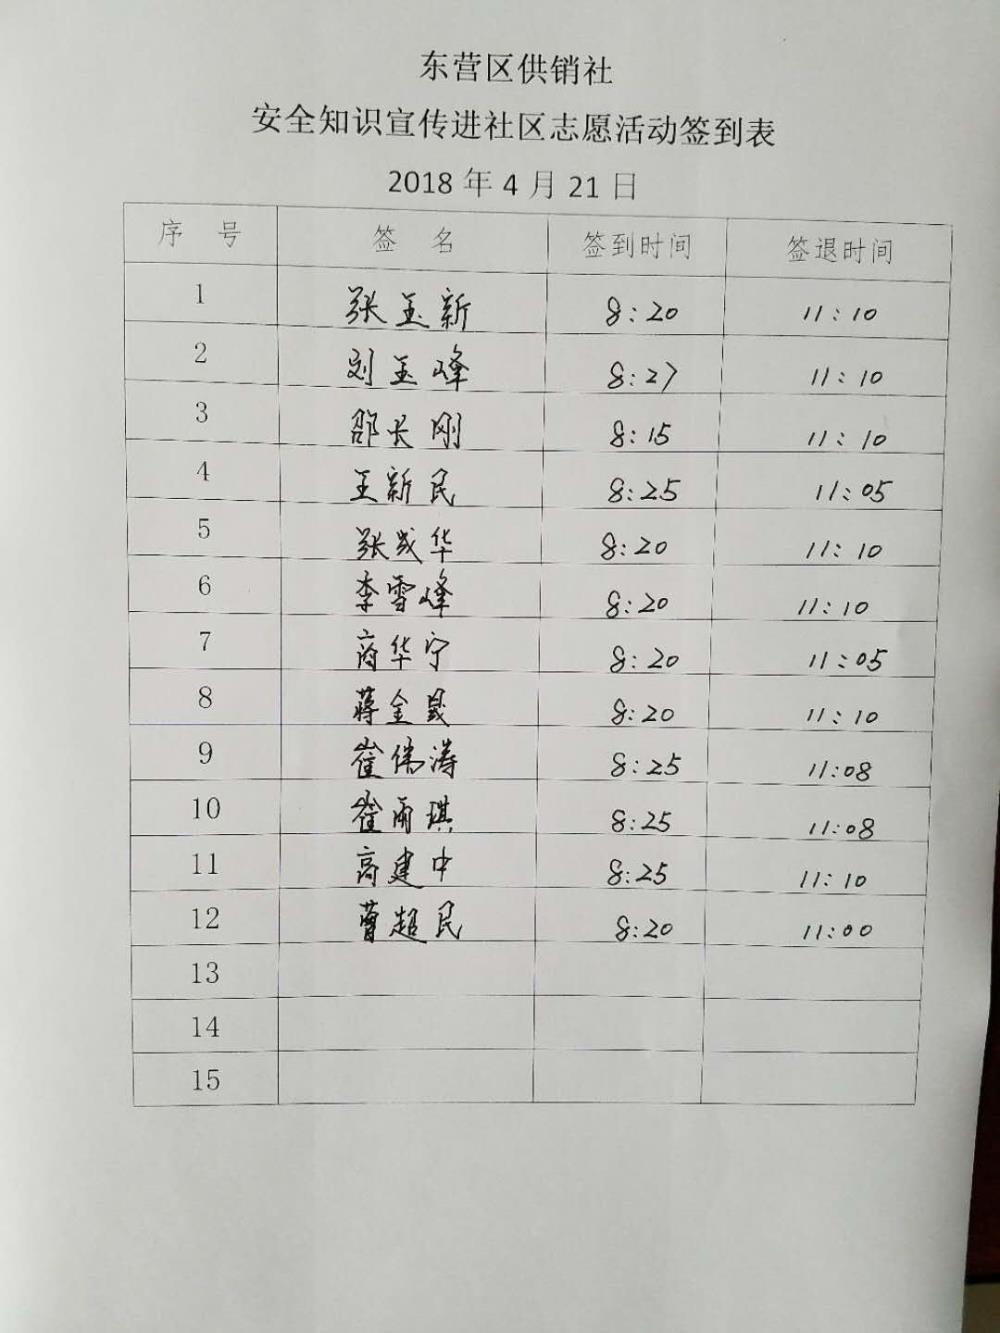 东营区供销社
安全知识宣传进社区志愿活动签到表
2018 年 4 月 21 日
序 号 签 名 签到时间 签退时间
1 张玉新 8:20 11:10
2 刘玉峰 8:27 11:10
3 邵长刚 8:15 11:10
4 王新民 8:25 11:05
5 张成华 8:20 11:10
6 李雪峰 8:20 11:10
7 商华宁 8:20 11:05
8 蒋金晟 8:20 11:10
9 崔伟涛 8:25 11:08
10 崔雨琪 8:25 11:08
11 高建中 8:25 11:10
12 曹超民 8:20 11:00
13
14
15